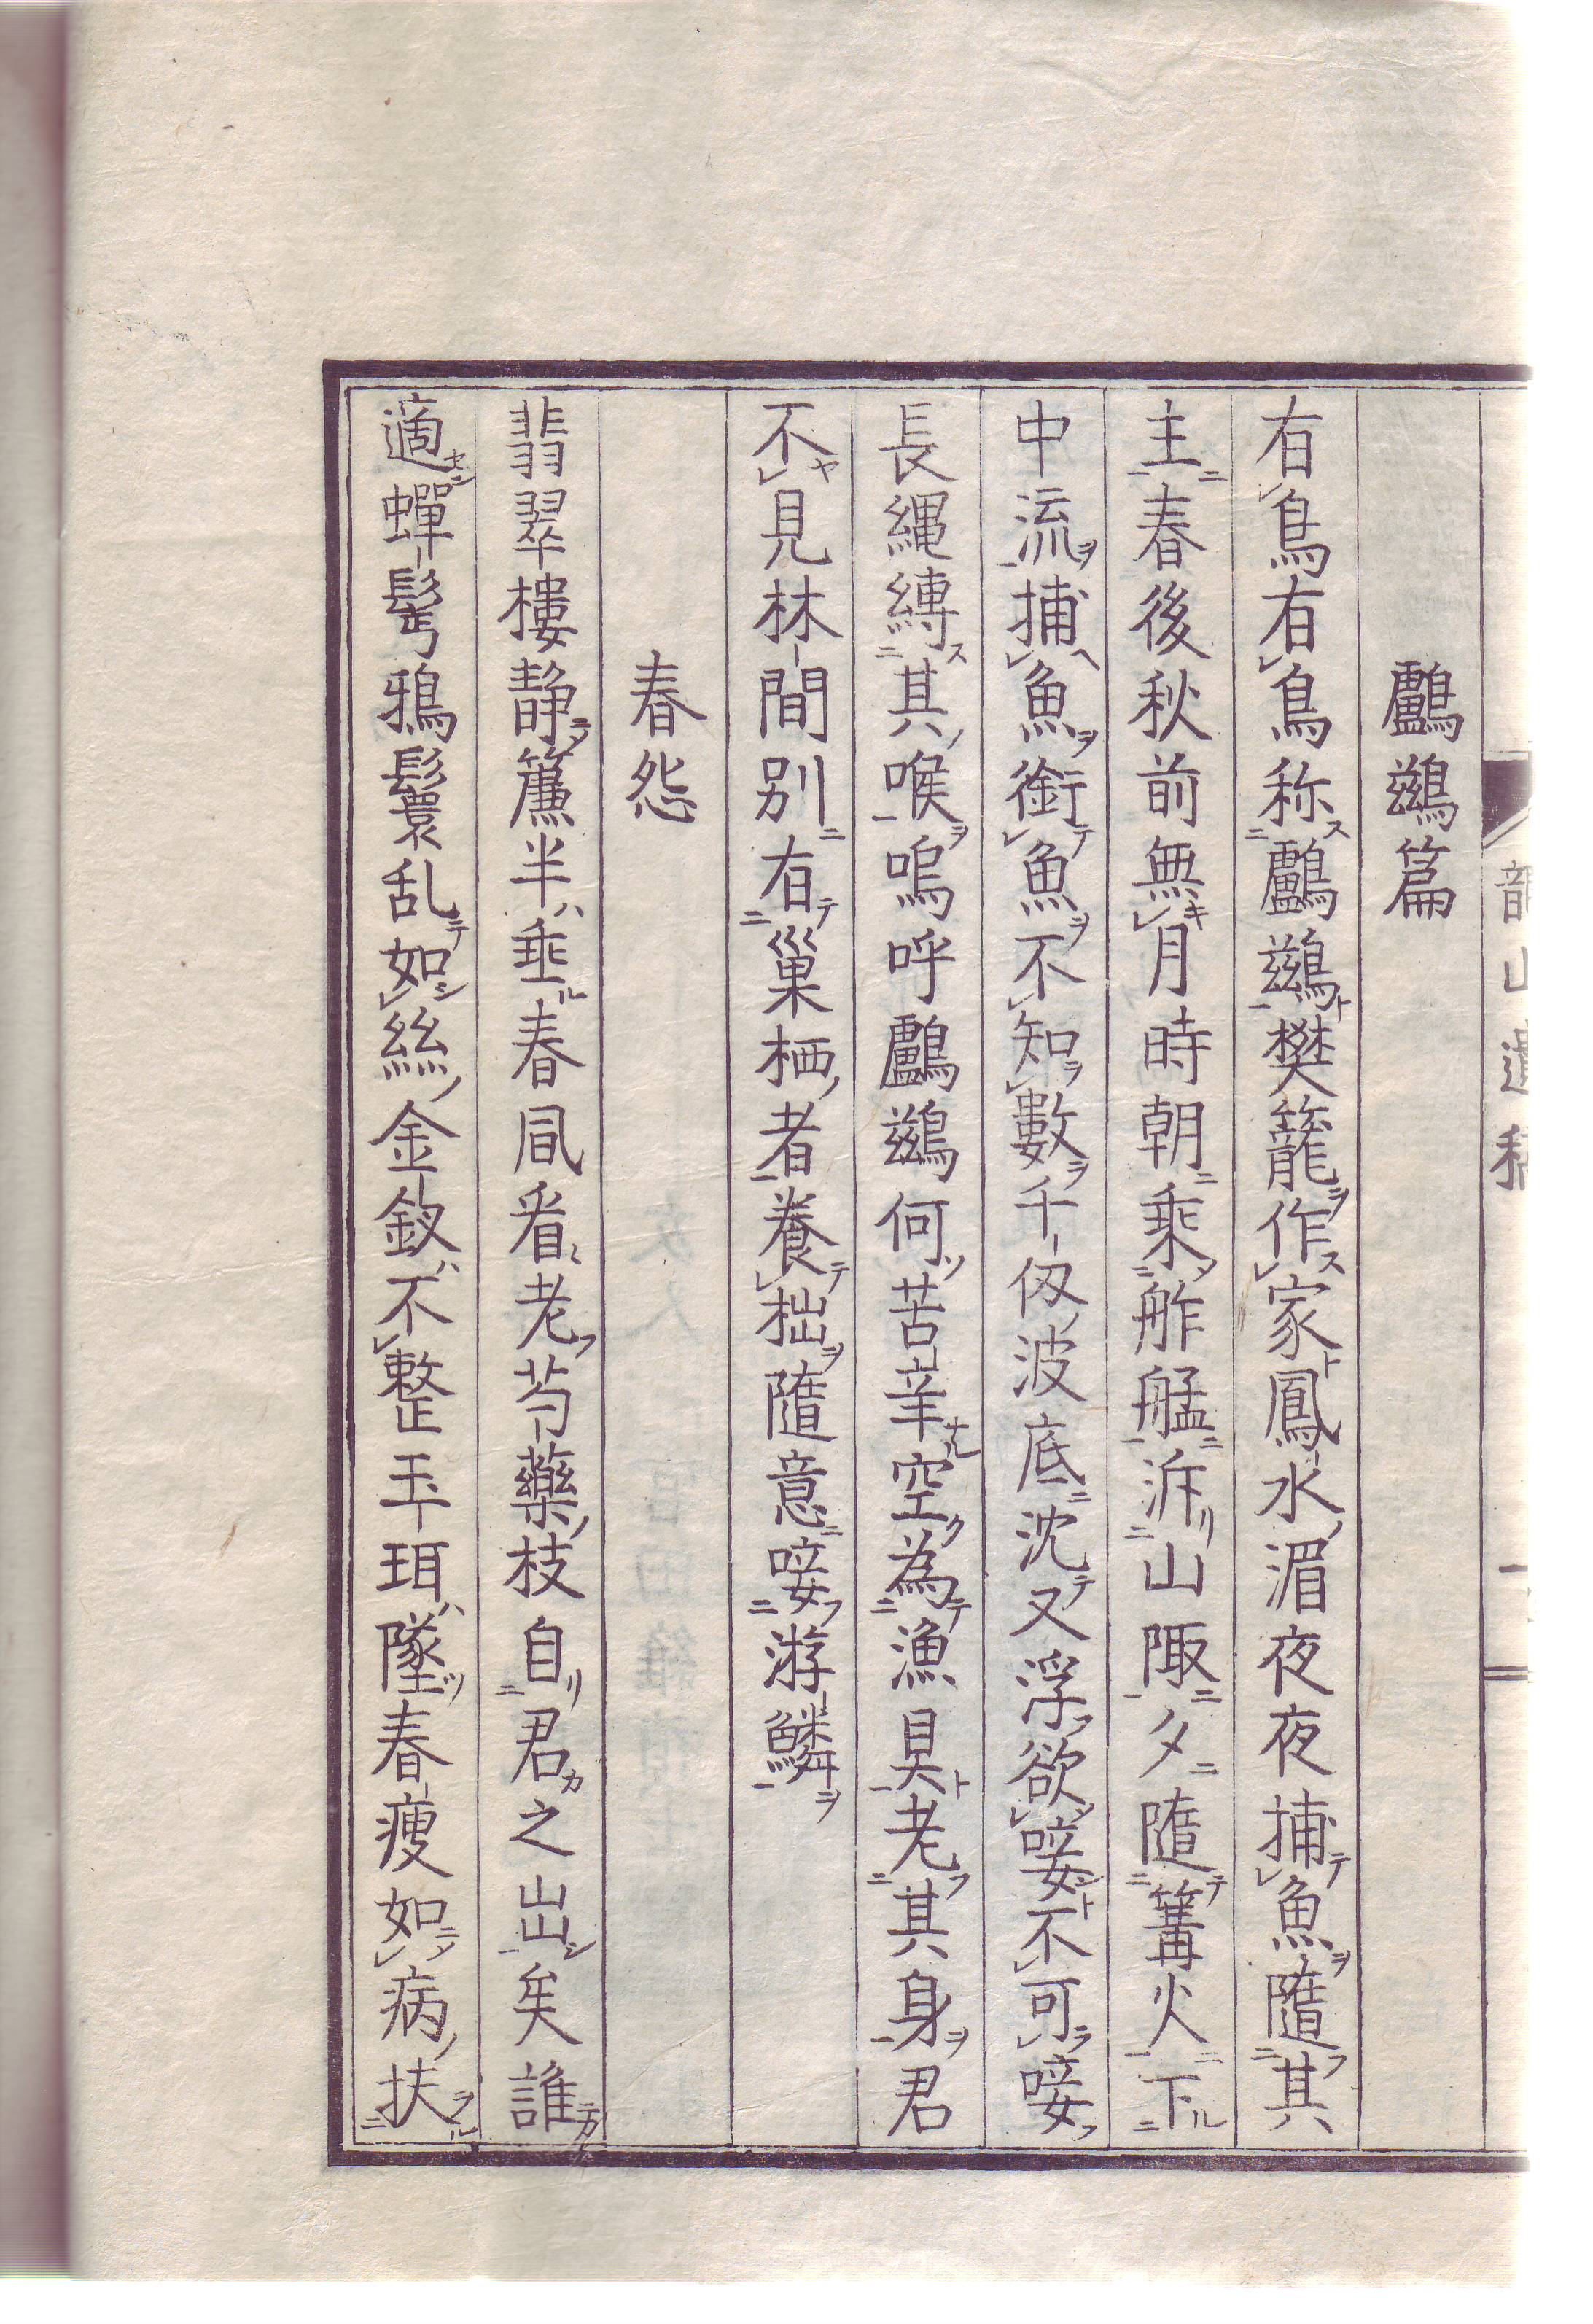 鸕鷀篇
有鳥有鳥称鸕鷀樊籠作家鳳水湄夜夜捕魚隨其
主春後秋前無月時朝乗舴艋泝山陬夕隨篝火下
中流捕魚銜魚不知數千仭波底沈又浮欲唼不可唼
長縄縛其喉嗚呼鸕鷀何苦辛空為漁具老其身君
不見林間別有巢栖者養拙隨意唼游鱗
春怨
翡翠樓静簾半垂春風看老芍藥枝自君之出矣誰
適蟬髩鴉鬟乱如絲金釵不整玉珥墜春痩如病扶